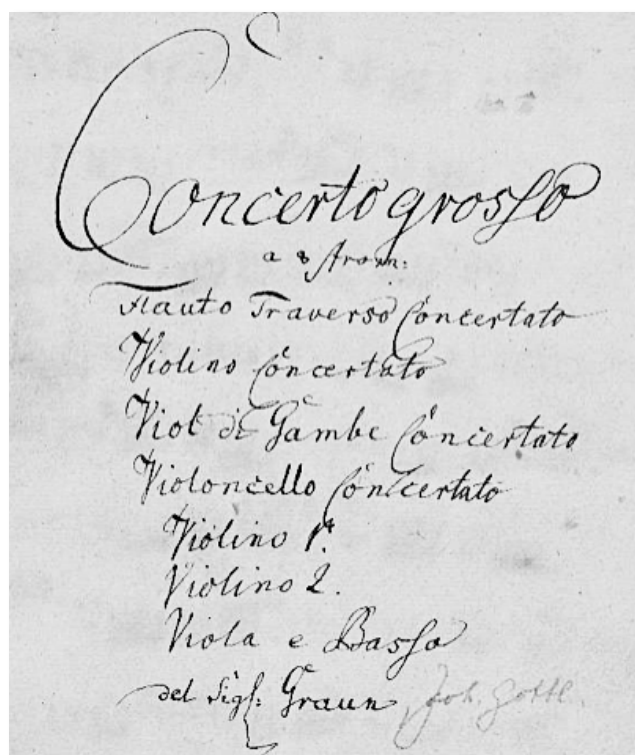 Concerto grosso
a 8 Strom:
Flauto Traverso Concertato
Violino Concertato
Viol di Gambe Concertato
Violoncello Concertato
Violino 1.
Violino 2.
Viola e Basso
del Sigl: Graun Joh. Gottl.